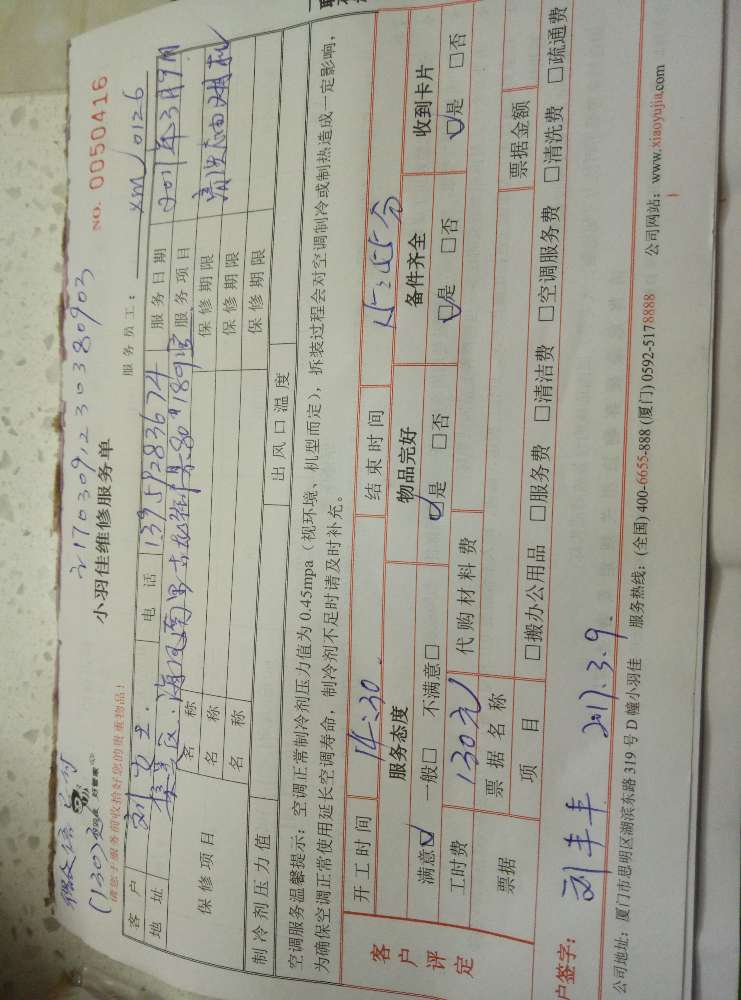 2170309230380903
(130)
NO. 0050416
小羽佳维修服务单
请您于服务前收拾好您的贵重物品!
服务员工: xm 0126
客户 刘女士 电话 13959283674 服务日期 2017年3月9日
地址 服务项目 清洗
保修项目 名称 保修期限
名称 保修期限
名称 保修期限
制冷剂压力值 出风口温度
空调服务温馨提示: 空调正常制冷剂压力值为 0.45mpa (视环境、机型而定), 拆装过程会对空调制冷或制热造成一定影响,
为确保空调正常使用延长空调寿命, 制冷剂不足时请及时补充。
客户评定
开工时间 14:30 结束时间 15:55分
服务态度 物品完好 备件齐全 收到卡片
满意☑ 一般□ 不满意□ ☑是 □否 ☑是 □否 ☑是 □否
工时费 130元 代购材料费
票据 票据名称 票据金额
项目 □搬办公用品 □服务费 □清洁费 □空调服务费 □清洗费 □疏通费
户签字: 刘丰丰 2017.3.9.
公司地址: 厦门市思明区湖滨东路 319 号 D 幢小羽佳 服务热线: (全国) 400-6655-888 (厦门) 0592-5178888 公司网站: www.xiaoyujia.com